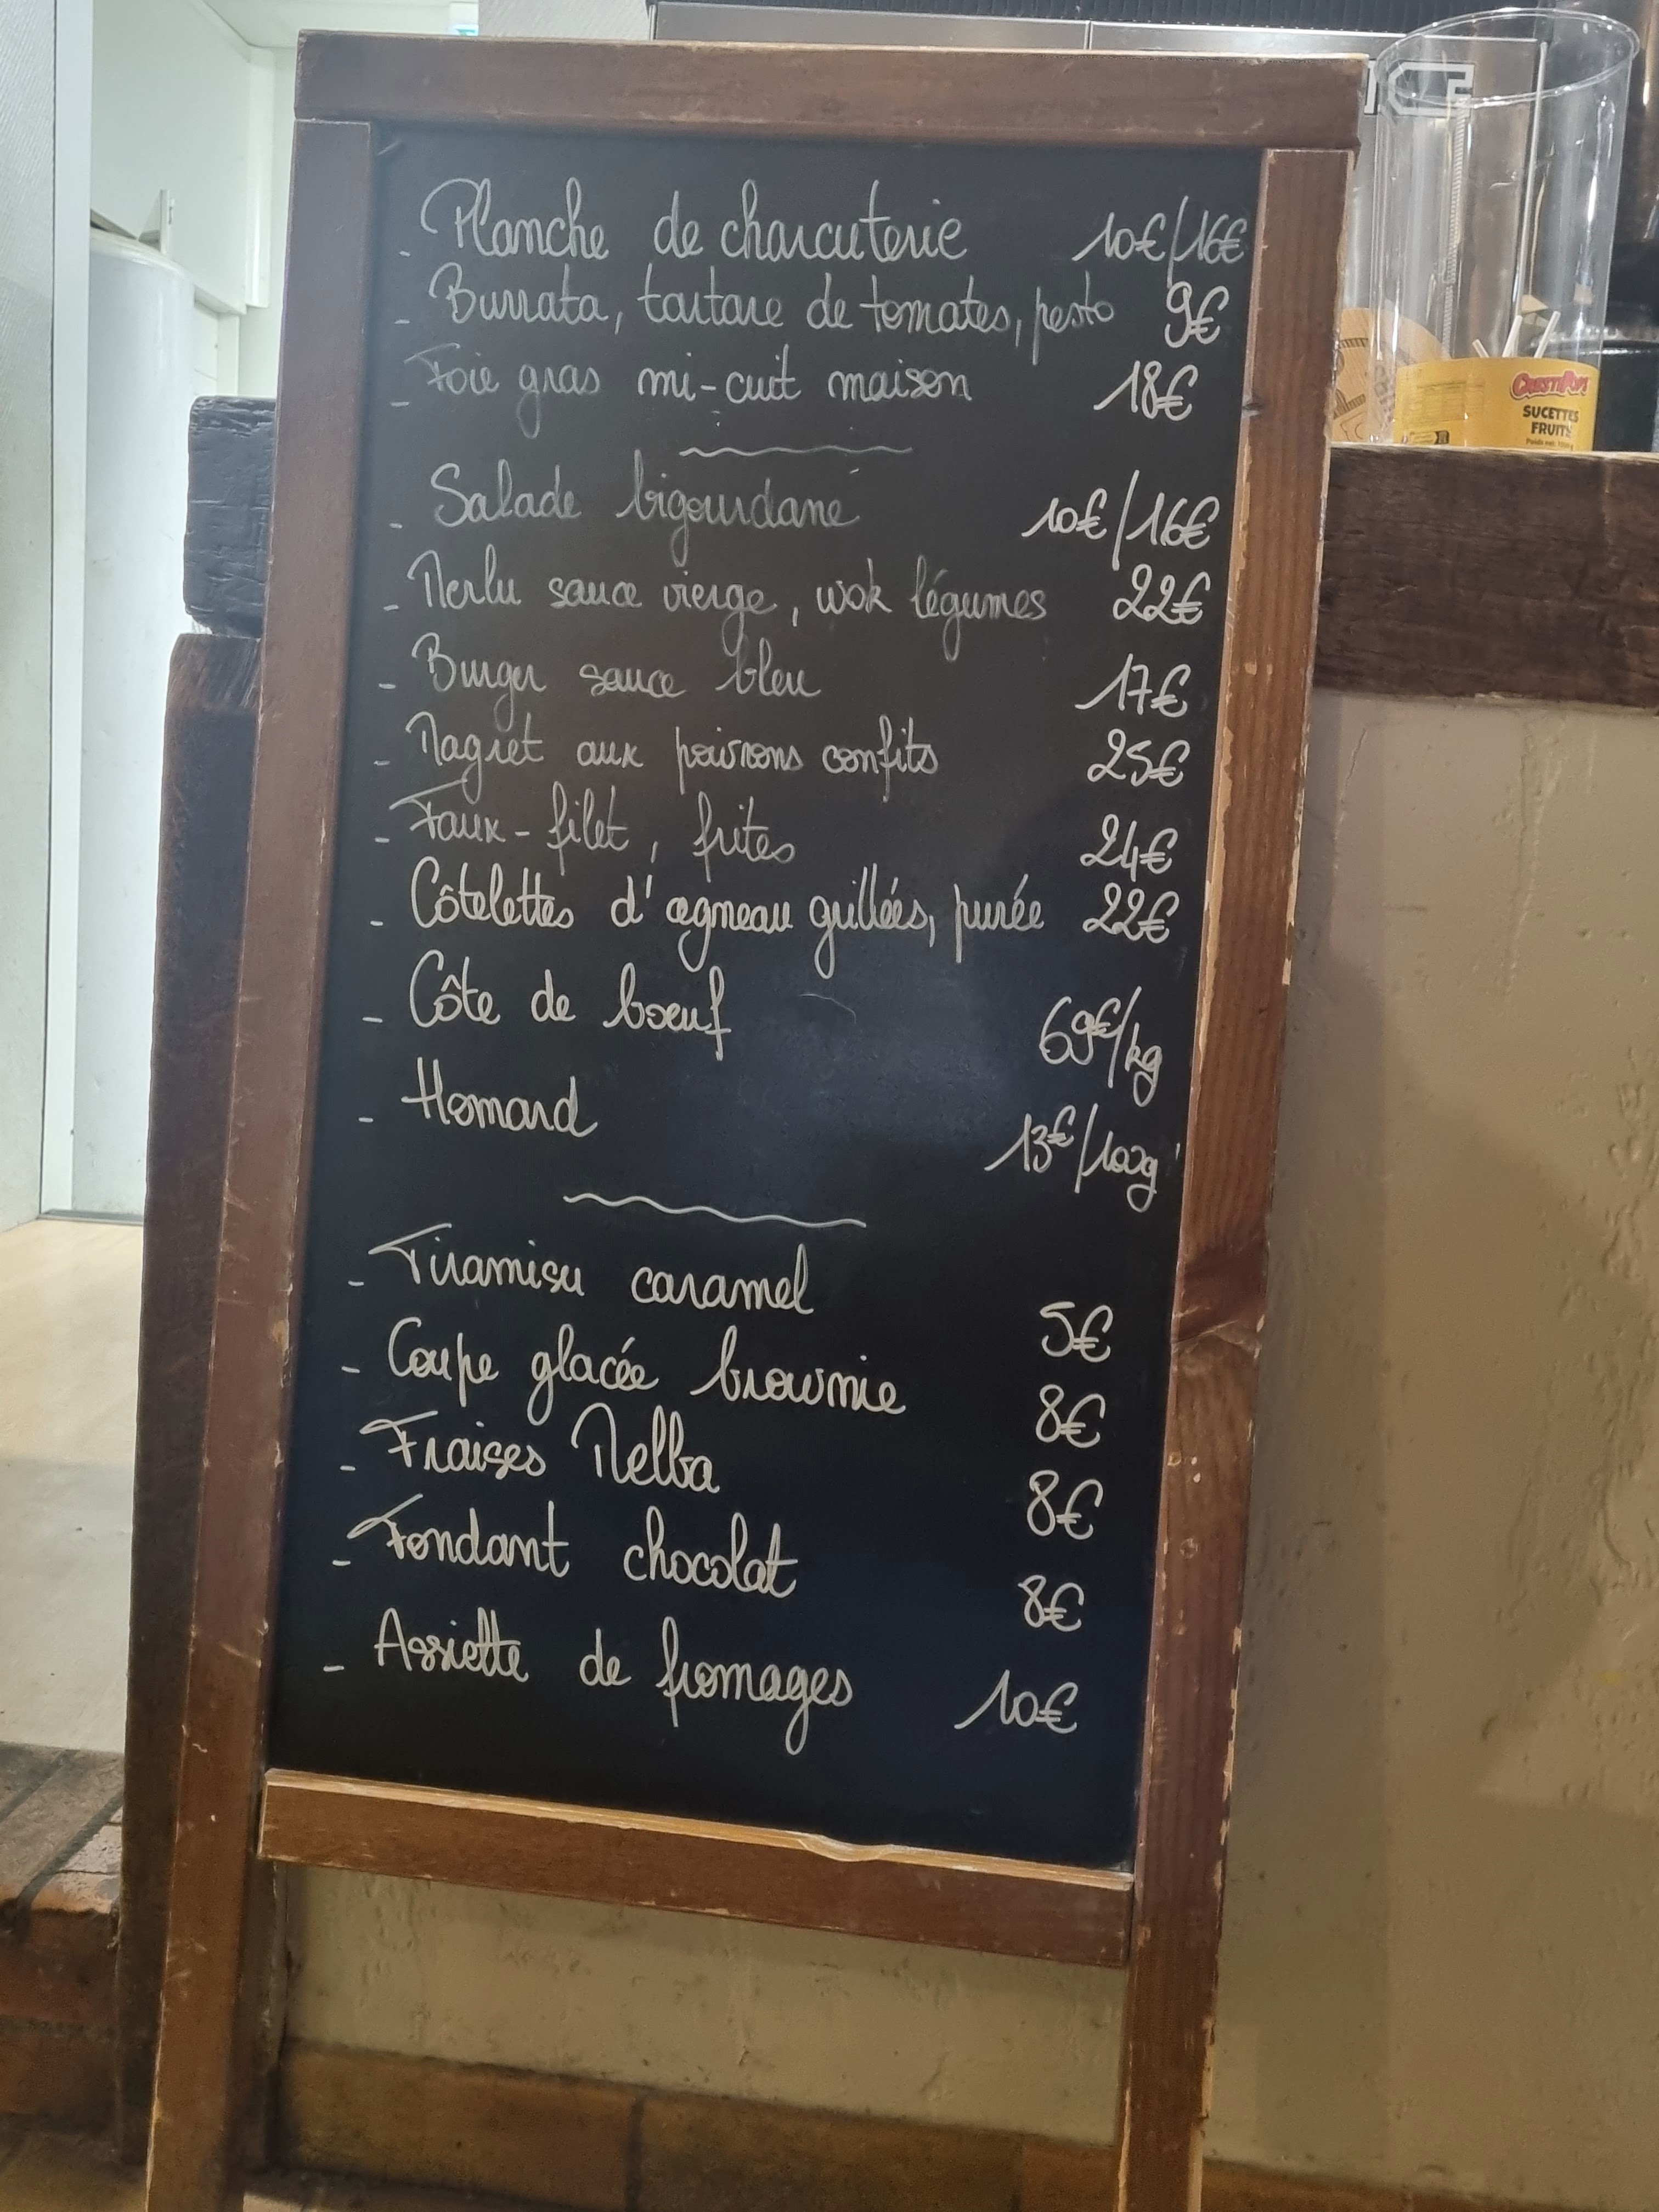 - Planche de charcuterie 10€/16€
- Burrata, tartare de tomates, pesto 9€
- Foie gras mi-cuit maison 18€
- Salade bigourdane 10€/16€
- Merlu sauce vierge, wok légumes 22€
- Burger sauce bleu 17€
- Magret aux poivrons confits 25€
- Faux-filet, frites 24€
- Côtelettes d'agneau grillées, purée 22€
- Côte de boeuf 69€/kg
- Homard 13€/100g
- Tiramisu caramel 5€
- Coupe glacée brownie 8€
- Fraises Melba 8€
- Fondant chocolat 8€
- Assiette de fromages 10€
SUCETTES
FRUITS